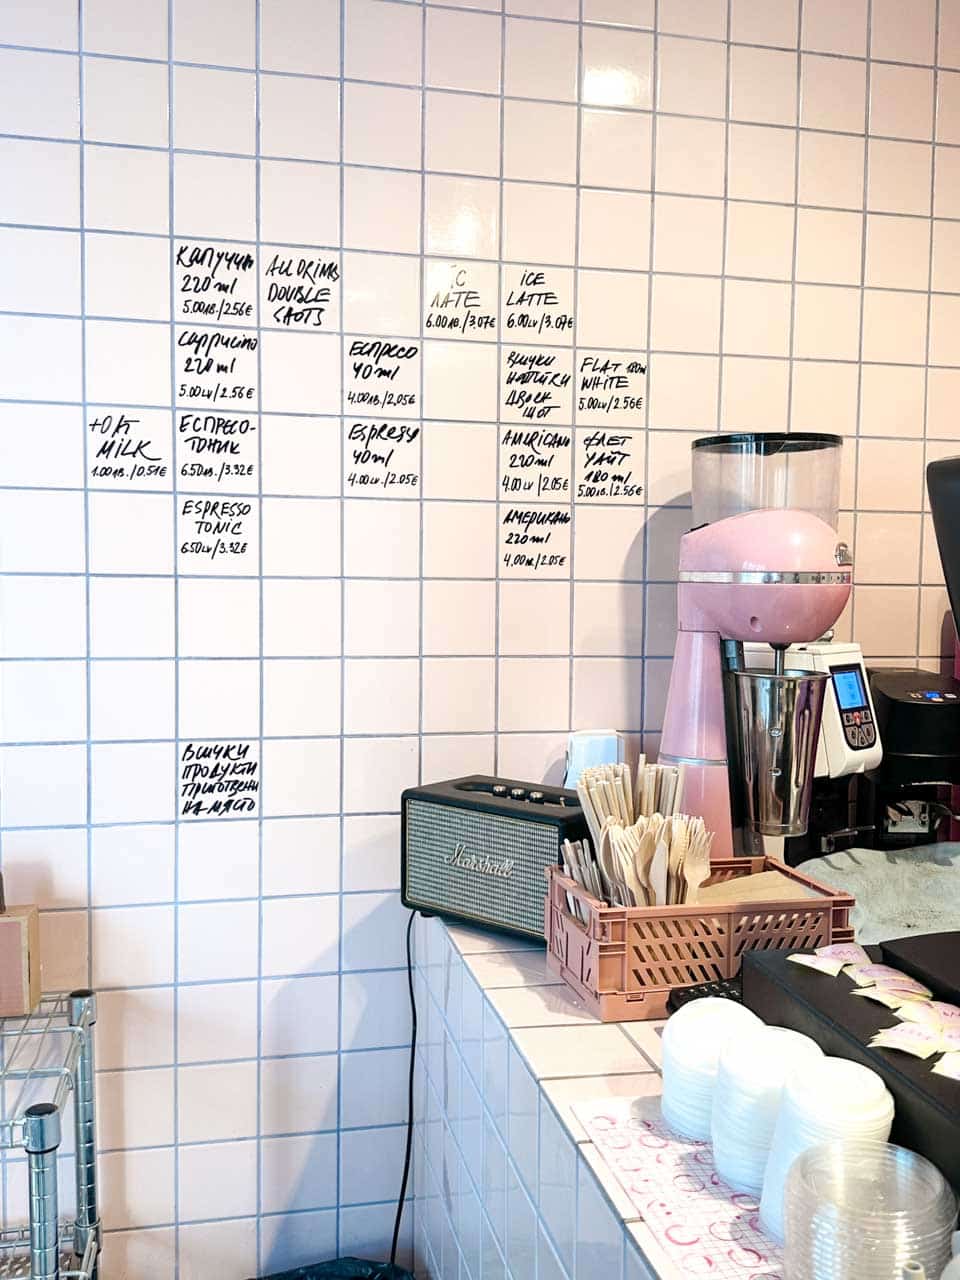 Капучино
220 ml
5.00лв./2.56€
Cappucino
220 ml
5.00LV/2.56€
ALL DRINKS
DOUBLE
SHOTS
6.00лв./3.07€
ICE
LATTE
6.00LV/3.07€
Еспресо
40 ml
4.00лв./2.05€
Espresso
40 ml
4.00LV./2.05€
Всички
напитки
двоен
шот
FLAT 180ml
WHITE
5.00LV/2.56€
MILK
1.00лв./0.51€
ЕСПРЕСО-
ТОНИК
6.50лв./3.32€
ESPRESSO
TONIC
6.50LV/3.32€
AMERICANO
220 ml
4.00LV/2.05€
ФЛЕТ
УАЙТ
180 ml
5.00лв./2.56€
АМЕРИКАНО
220 ml
4.00лв./2.05€
ВСИЧКИ
ПРОДУКТИ
ПРИГОТВЕНИ
НА МЯСТО
Marshall